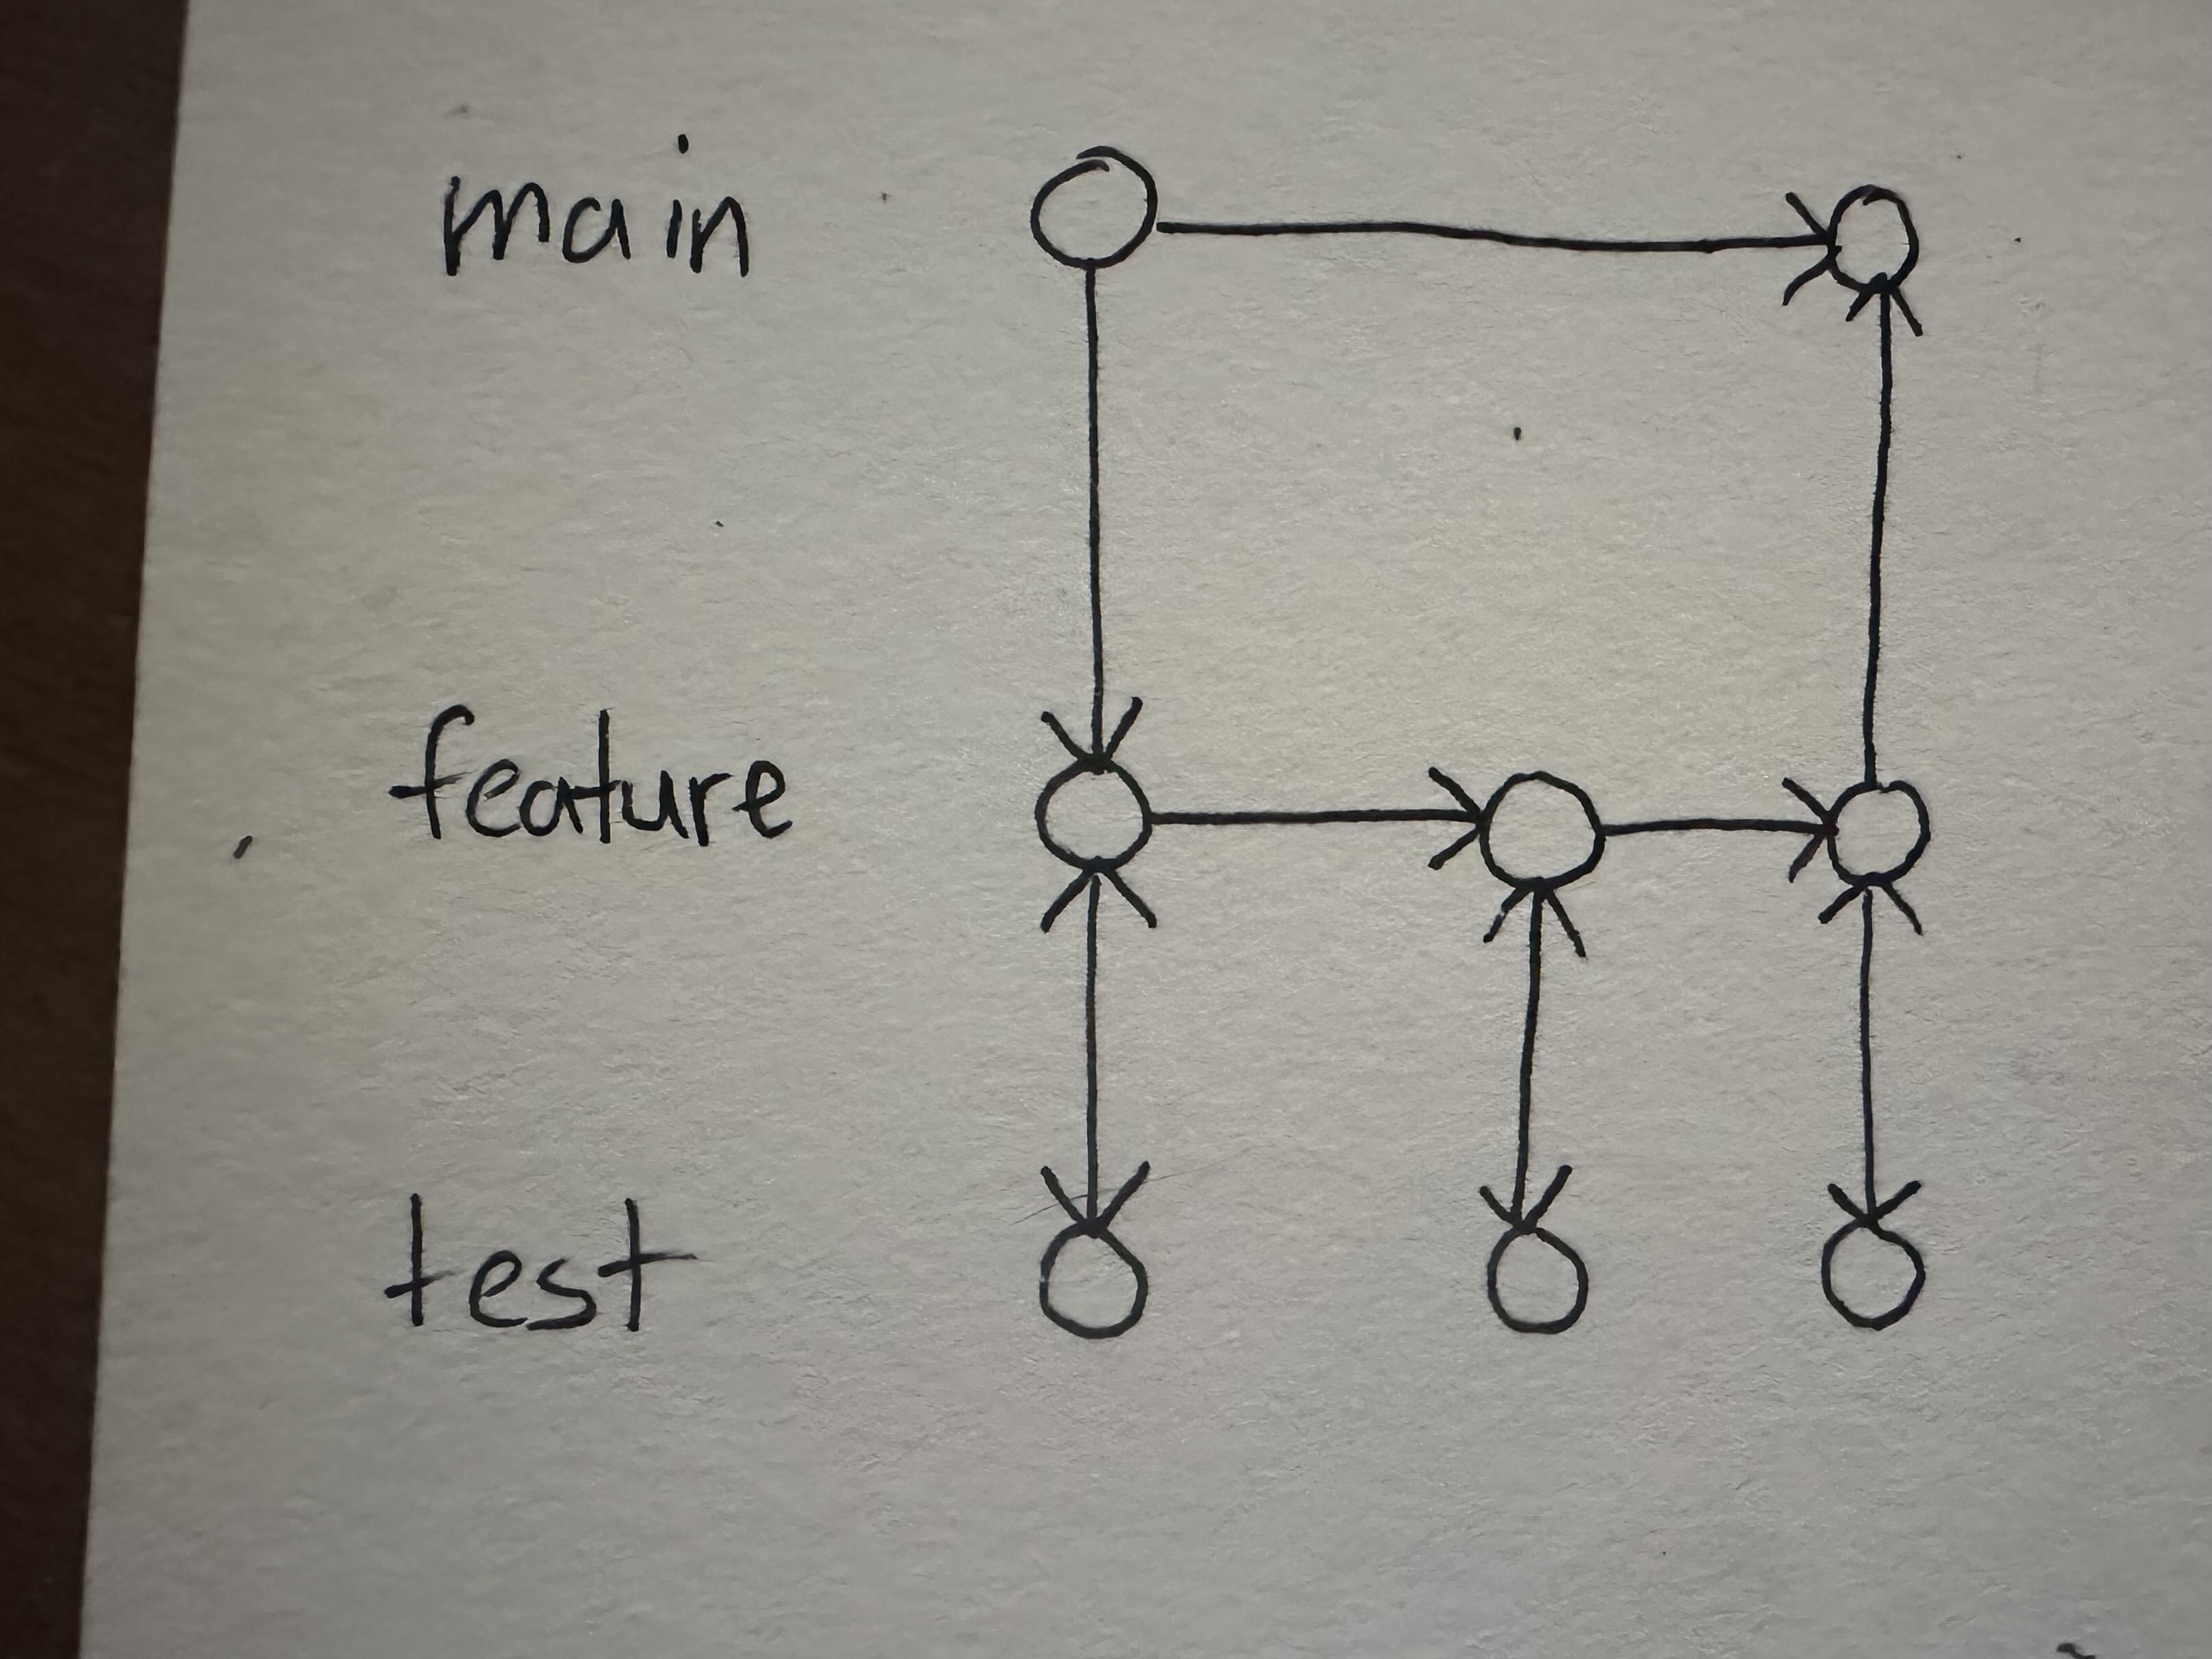 main
feature
test